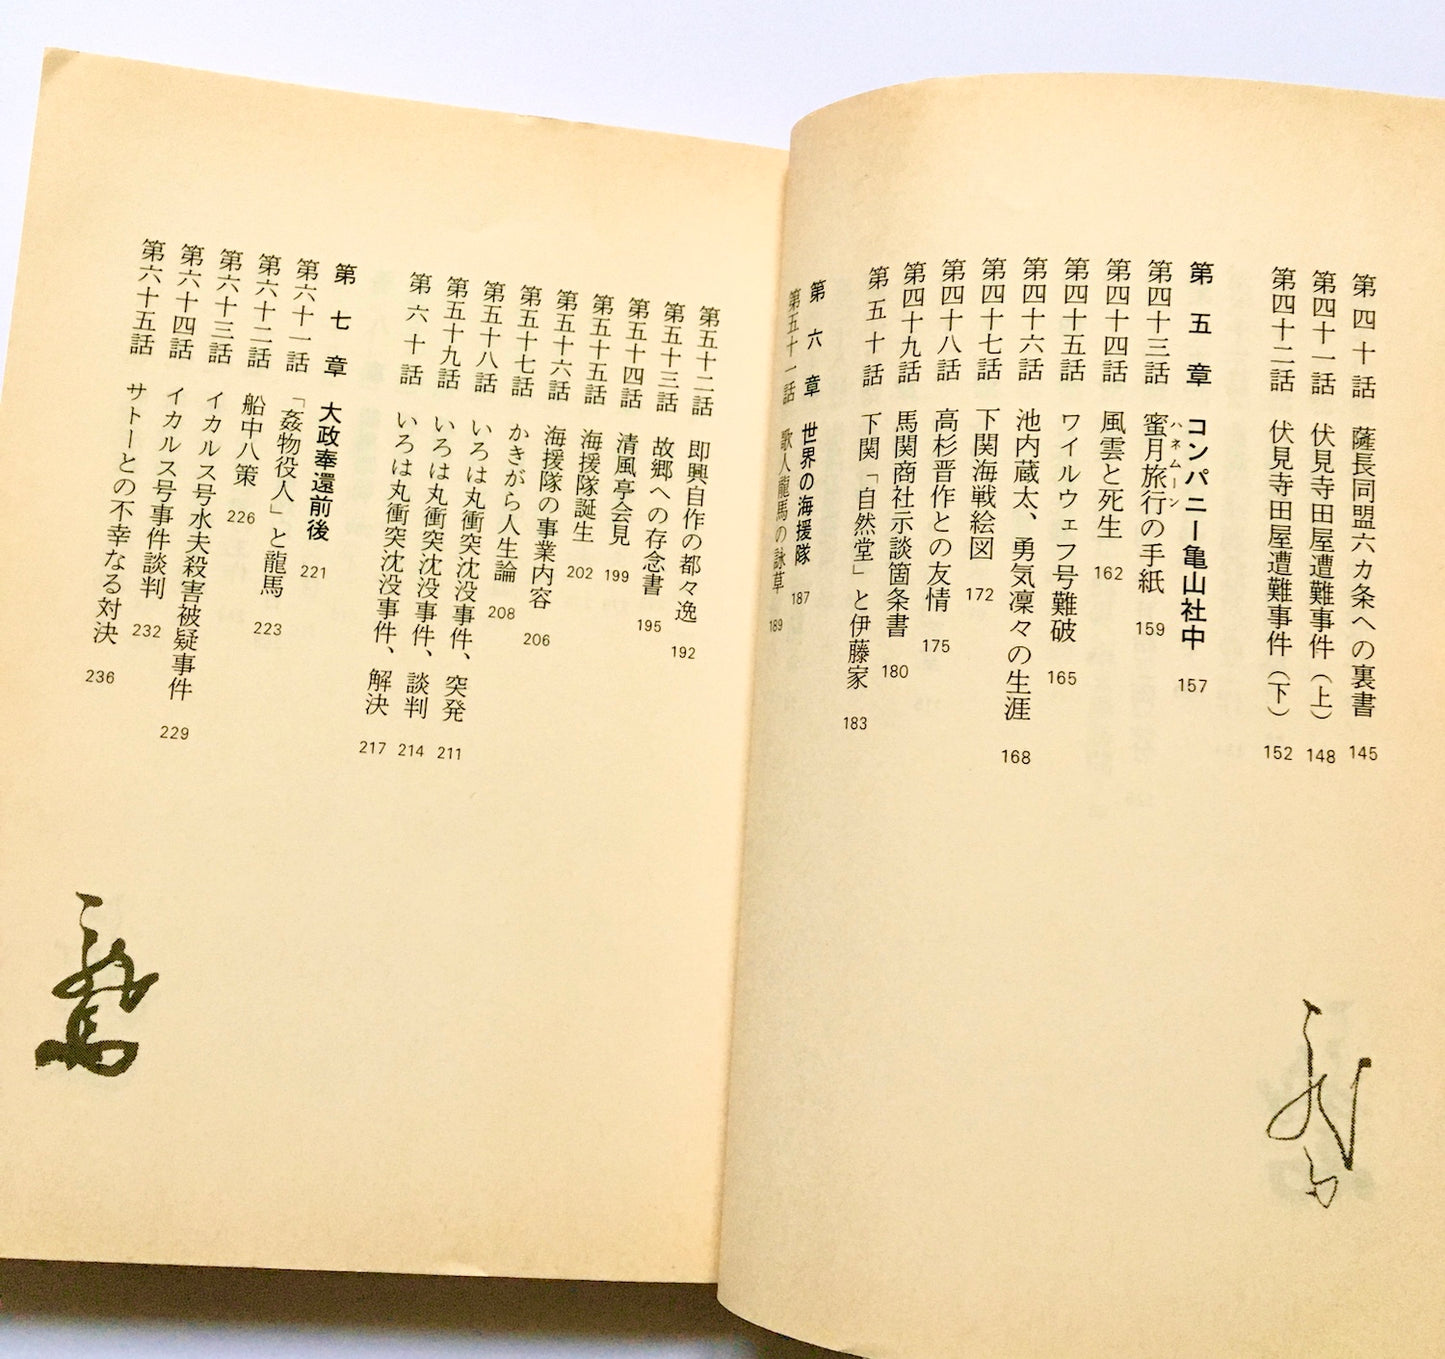 第四十話 薩長同盟六カ条への裏書 145
第四十一話 伏見寺田屋遭難事件(上) 148
第四十二話 伏見寺田屋遭難事件(下) 152
第五章 コンパニー亀山社中 157
第四十三話 蜜月旅行の手紙 159
ハネムーン
第四十四話 風雲と死生 162
第四十五話 ワイルウェフ号難破 165
第四十六話 池内蔵太、勇気凜々の生涯 168
第四十七話 下関海戦絵図 172
第四十八話 高杉晋作との友情 175
第四十九話 馬関商社示談箇条書 180
第五十話 下関「自然堂」と伊藤家 183
第六章 世界の海援隊 187
第五十一話 歌人龍馬の詠草 189
第五十二話 即興自作の都々逸 192
第五十三話 故郷への存念書 195
第五十四話 清風亭会見 199
第五十五話 海援隊誕生 202
第五十六話 海援隊の事業内容 206
第五十七話 かきがら人生論 208
第五十八話 いろは丸衝突沈没事件、突発 211
第五十九話 いろは丸衝突沈没事件、談判 214
第六十話 いろは丸衝突沈没事件、解決 217
第七章 大政奉還前後 221
第六十一話 「姦物役人」と龍馬 223
第六十二話 船中八策 226
第六十三話 イカルス号水夫殺害被疑事件 229
第六十四話 イカルス号事件談判 232
第六十五話 サトーとの不幸なる対決 236